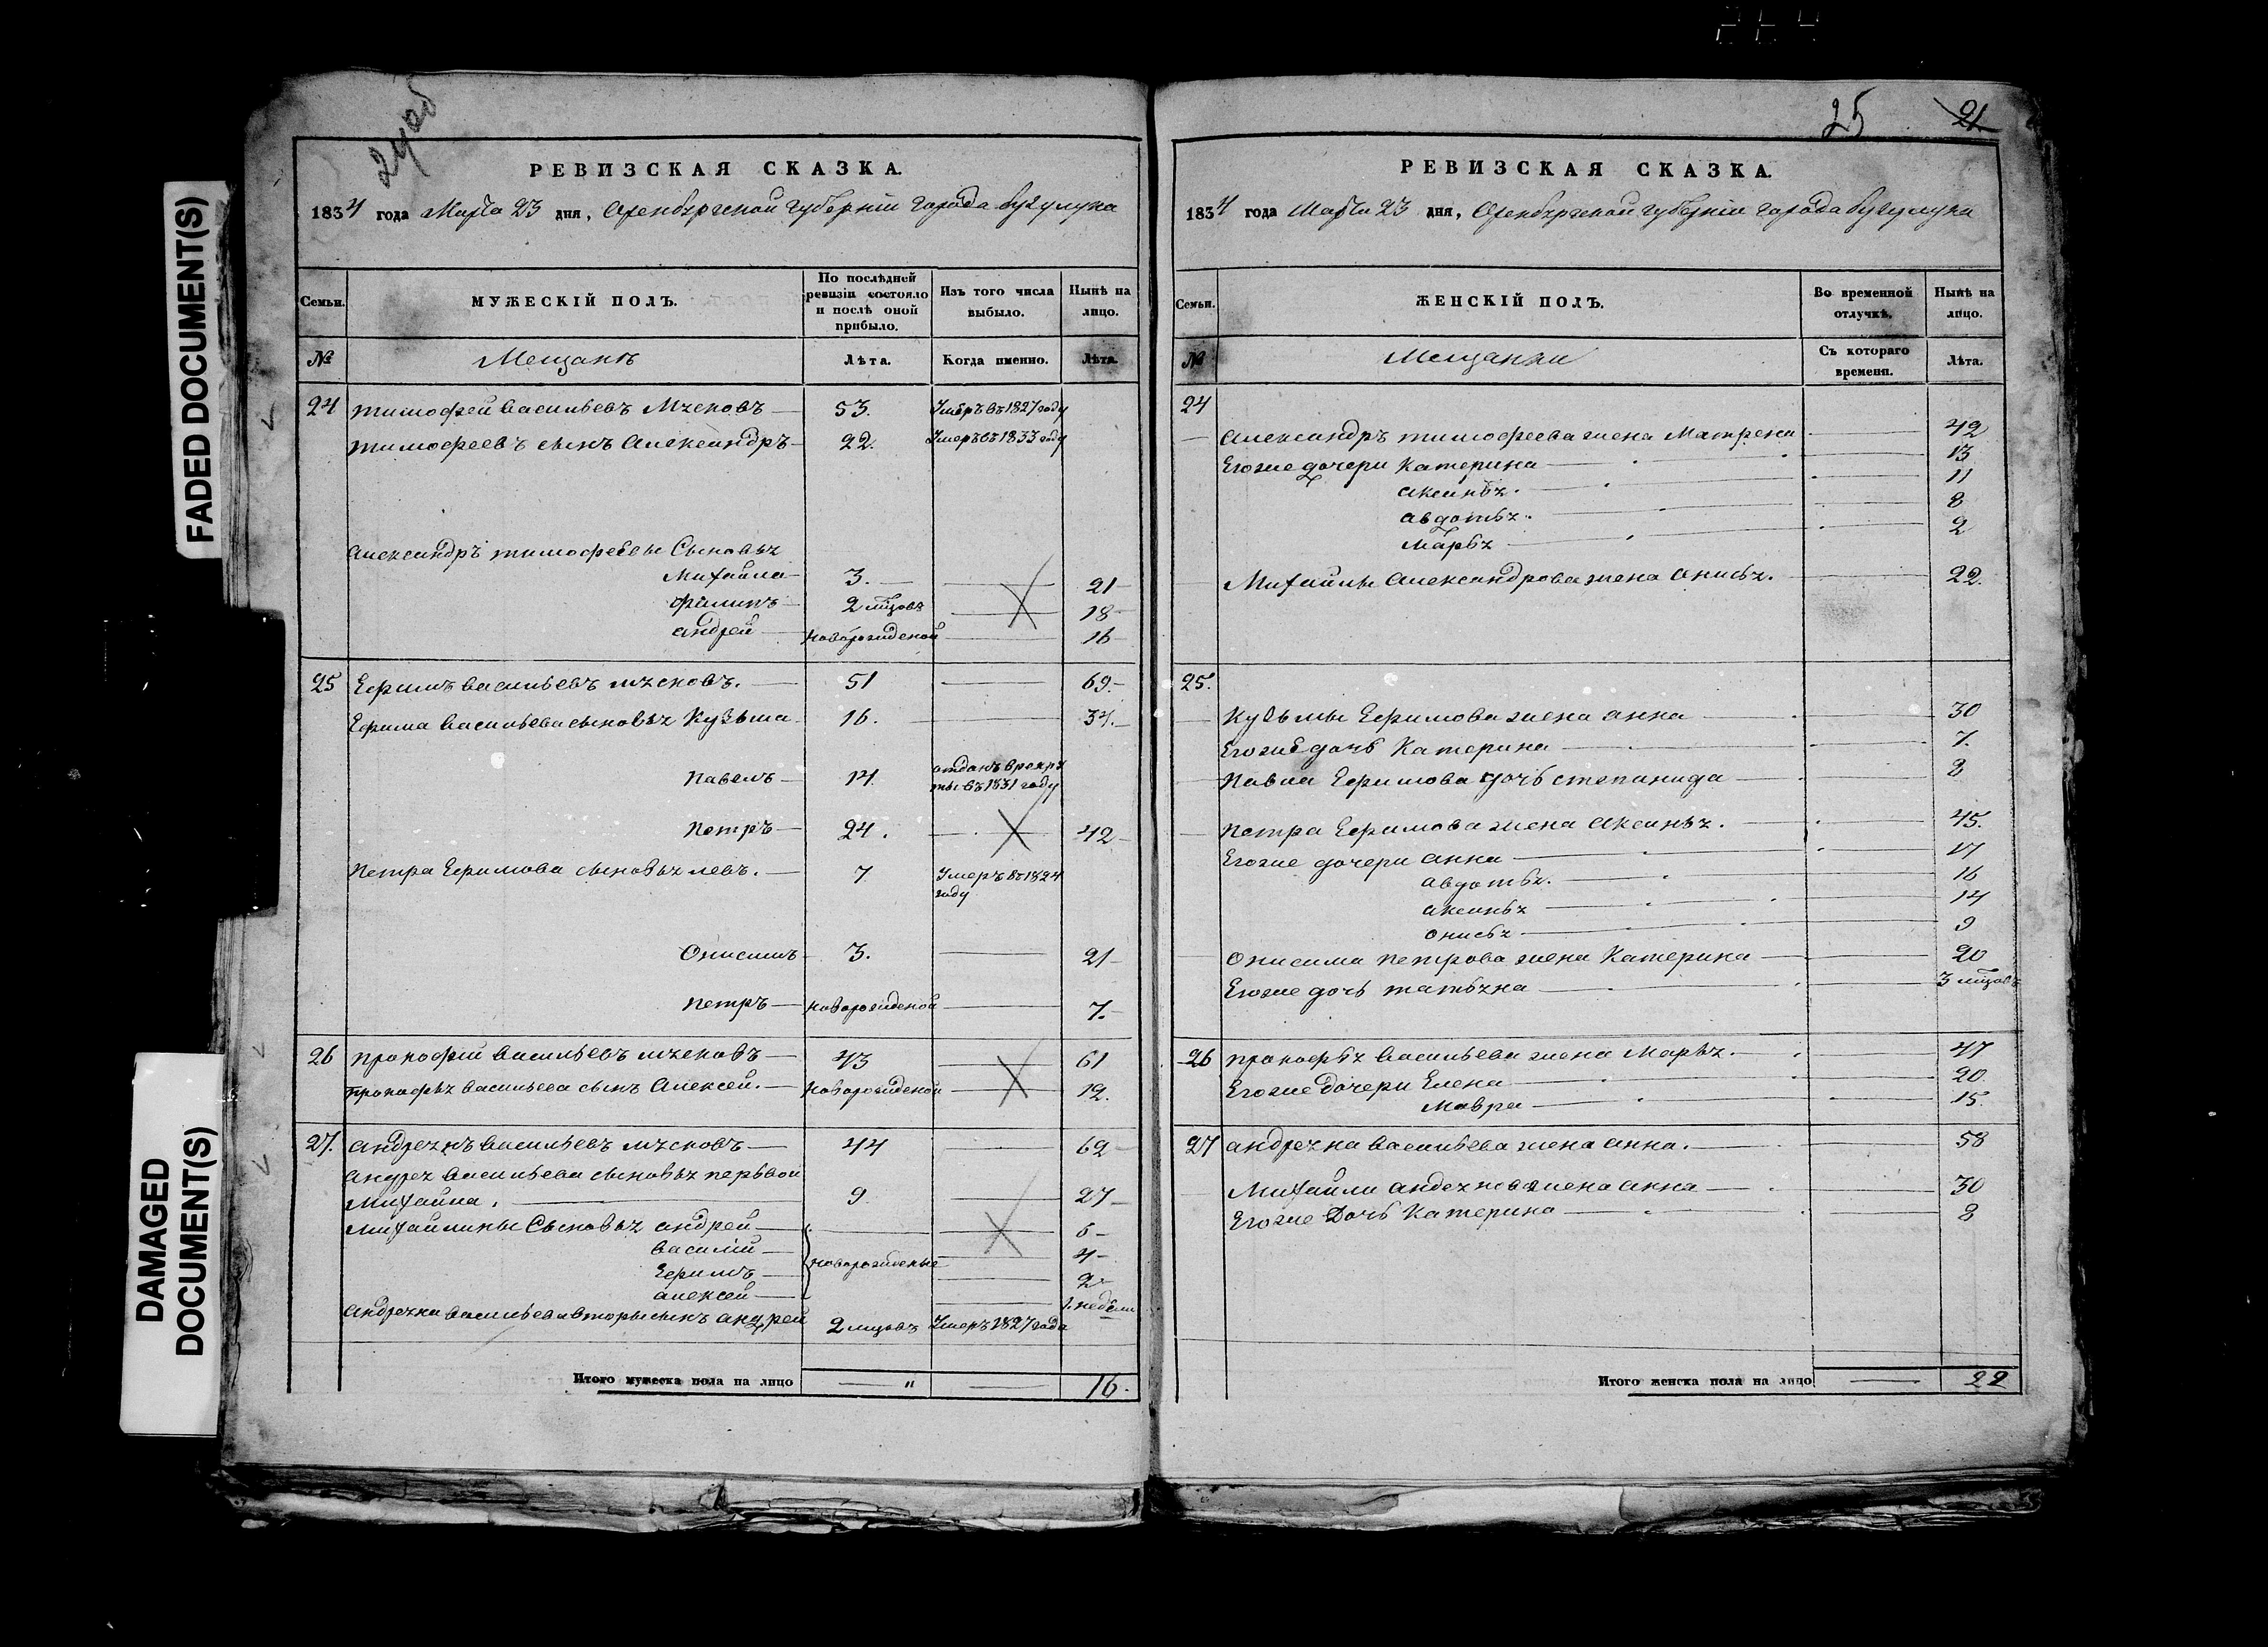 FADED DOCUMENT(S)
DAMAGED DOCUMENT(S)
24об
РЕВИЗСКАЯ СКАЗКА.
1834 года Марта 23 дня, Оренбургской губерніи города бугулука
Семьи.
МУЖЕСКІЙ ПОЛЪ.
По послѣдней ревизіи состояло и послѣ оной прибыло.
Изъ того числа выбыло.
Нынѣ на лицо.
№
Мещанъ
Лѣта.
Когда именно.
Лѣта.
24 тимофей васильевъ Мясновъ 53. Умеръ въ 1827 году
тимофеевъ сынъ Александръ 22. Умеръ въ 1833 году
Александръ тимофеевы Сыновья
Михайла 3. 21
филипъ 2 мцовъ 18
андрей новорожденой 16
25 Ефимъ васильевъ мясновъ. 51 69
Ефима васильева сыновья Кузьма 16. 34.
павелъ 14 отданъ врекруты въ 1831 году
петръ 24. 42
петра Ефимова сыновья левъ. 7 Умеръ въ 1824 году
Онисимъ 3. 21
петръ новорожденой 7.
26 прокофій васильевъ мясновъ 43 61
прокофья васильева сынъ Алексей. новорожденой 12.
27. андреянъ васильевъ мясновъ 44 62
андрея васильева сыновья первой
михайла. 9 27
михайлины Сыновья андрей 6
василій 4
Ефимъ новорожденые 2
алексей 1. недели
андреяна васильева вторы сынъ андрей 2 мцовъ Умеръ 1827 года
Итого мужеска пола на лицо " 16.
25 21
РЕВИЗСКАЯ СКАЗКА.
1834 года Марта 23 дня, Оренбургской губерніи города бугулука
Семьи.
ЖЕНСКІЙ ПОЛЪ.
Во временной отлучкѣ.
Нынѣ на лицо.
№
Мещанки
Съ котораго времени.
Лѣта.
24
Александръ тимофеева жена Матрена 42
Егоже дочери Катерина 13
аксинья. 11
авдотья. 8
марья 2
Михайлы Александрова жена анисья. 22.
25.
Кузьмы Ефимова жена анна 30
Егоже дочь Катерина 7.
павла Ефимова дочь степанида 8
петра Ефимова жена аксинья. 45.
Егоже дочери анна 17
авдотья. 16
аксинья 14
онисья 9
Онисима петрова жена Катерина 20
Егоже дочь татьяна 3 мцовъ
26 прокофья васильева жена марья. 47
Егоже дочери Елена 20.
мавра 15.
27 андреяна васильева жена анна. 58
Михайли андеянова жена анна 30
Егоже дочь Катерина 8
Итого женска пола на лицо 22